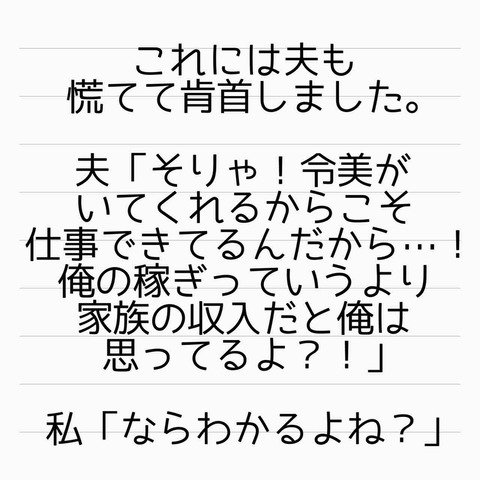 これには夫も
慌てて肯首しました。
夫「そりゃ！令美が
いてくれるからこそ
仕事できてるんだから…！
俺の稼ぎっていうより
家族の収入だと俺は
思ってるよ？！」
私「ならわかるよね？」